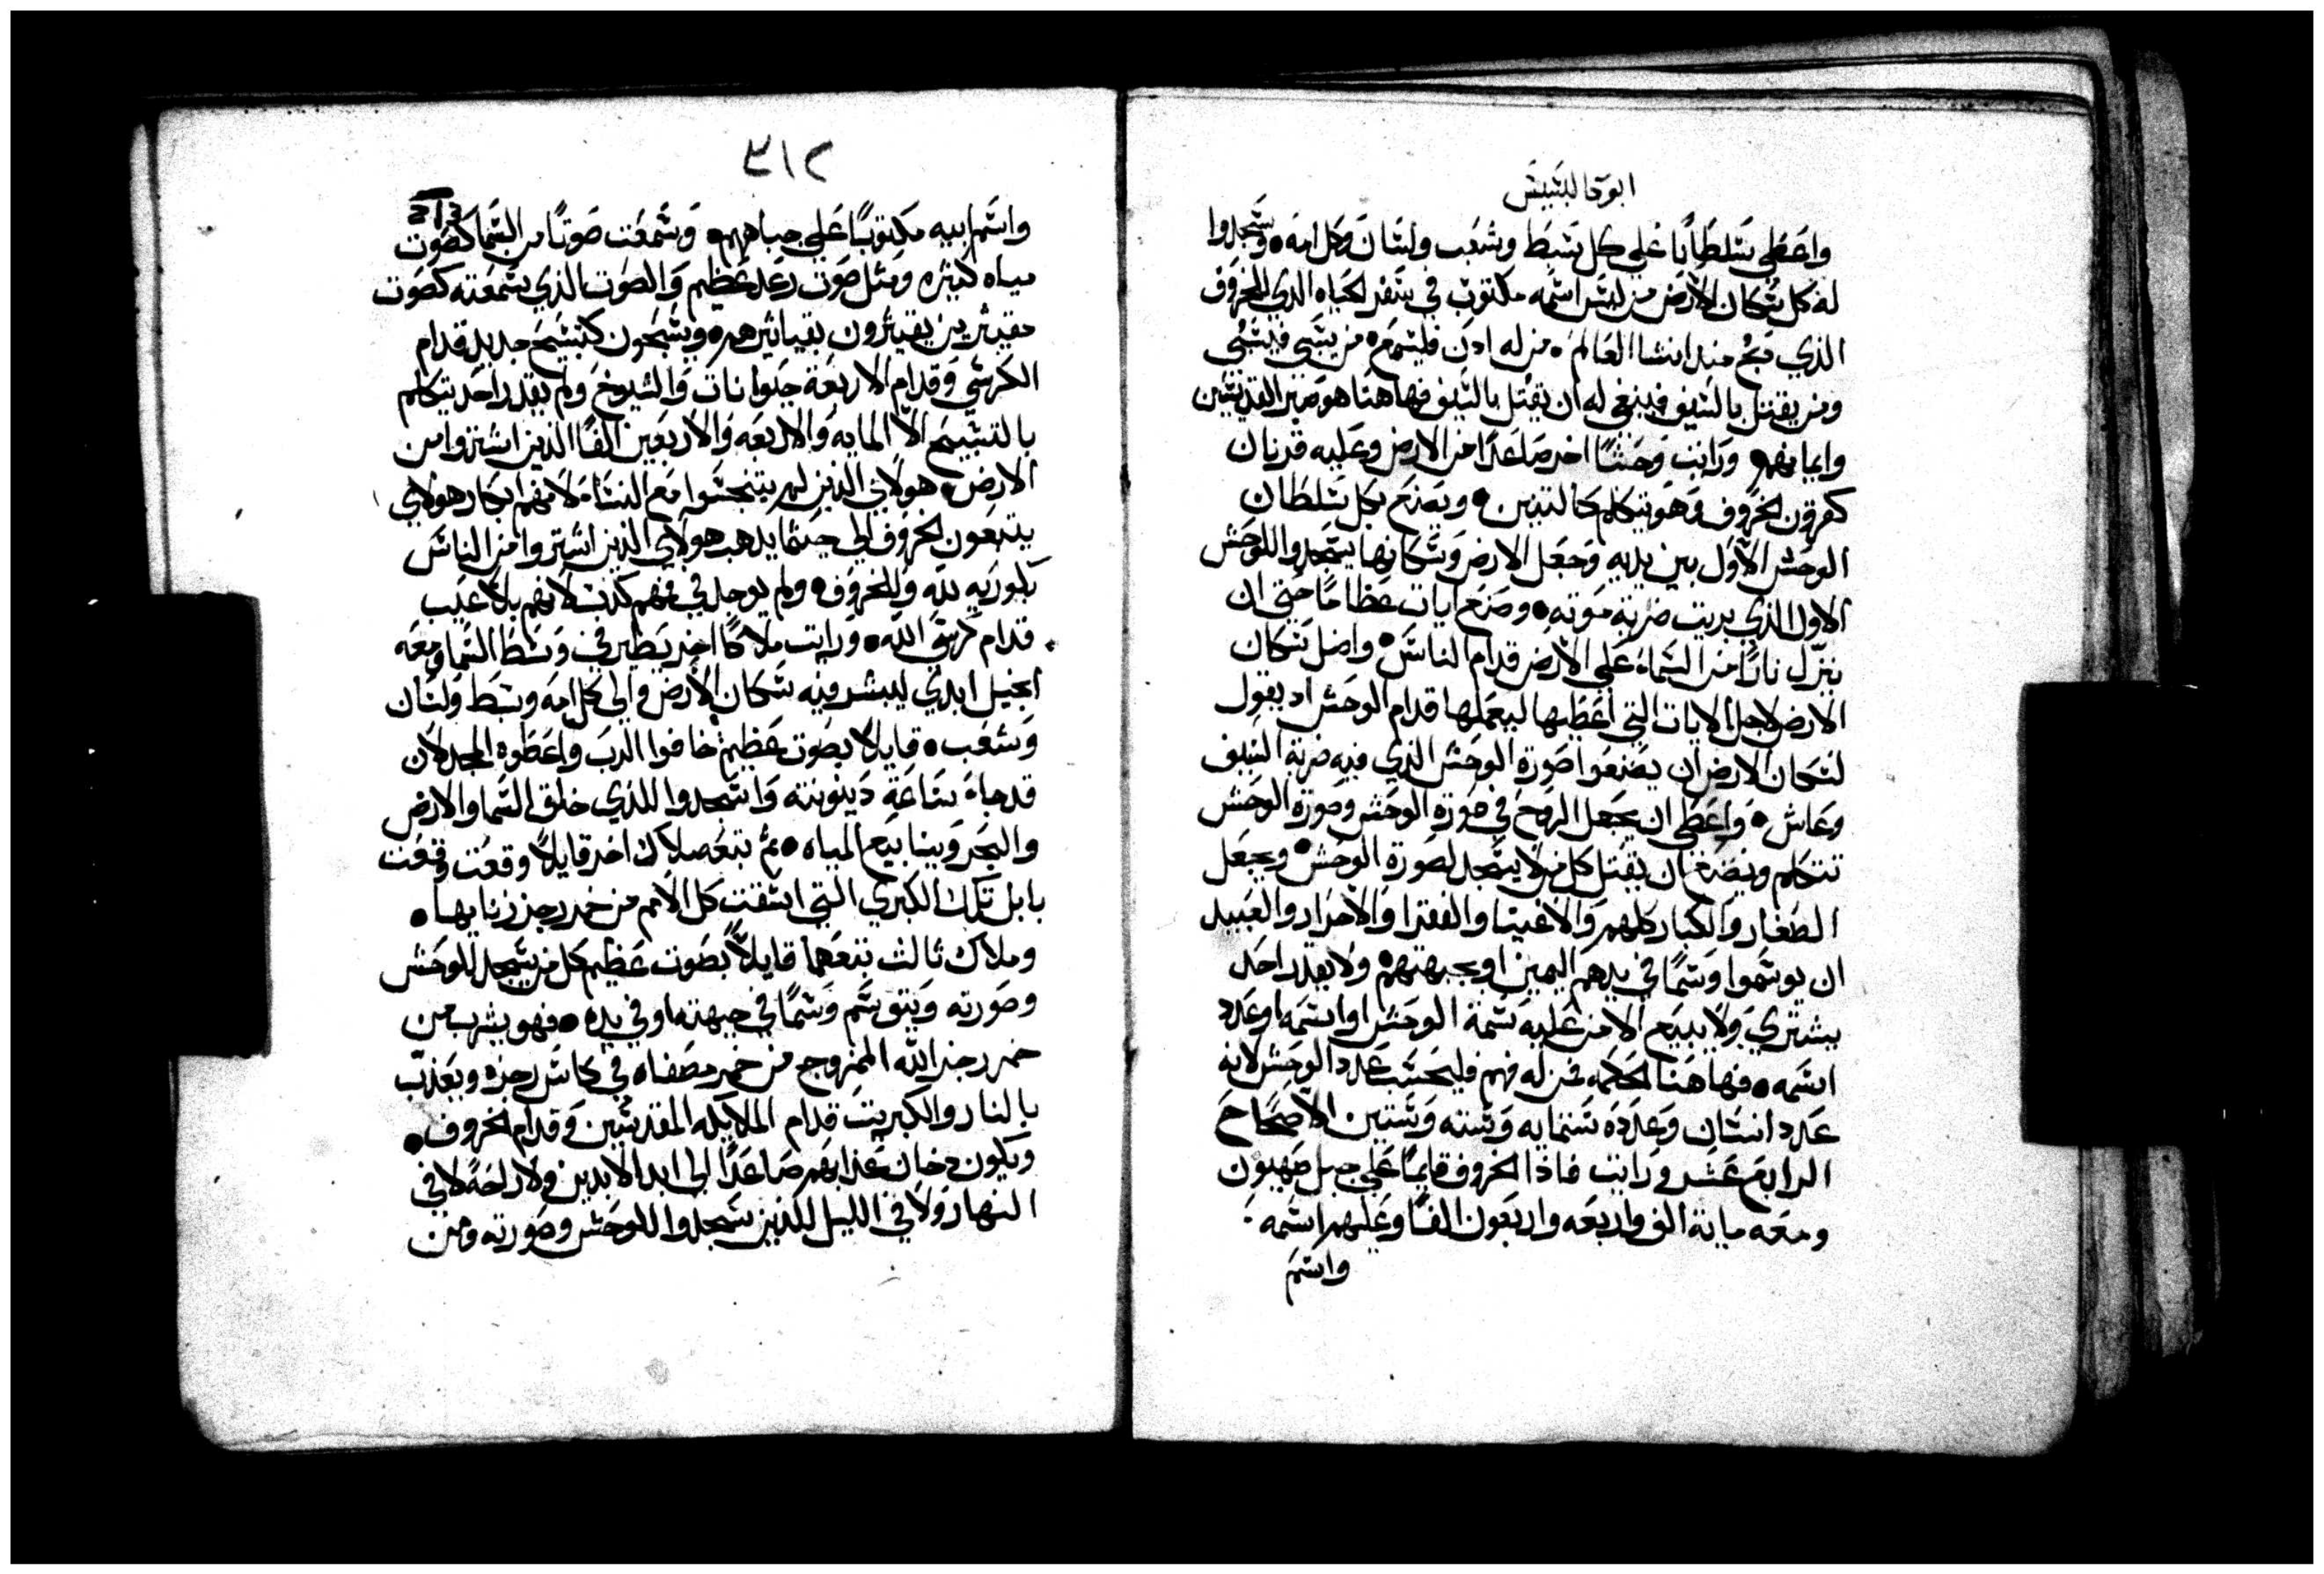 ابوقالبسيس
واعطى سلطانا على كل سبط وشعب ولسان وكل امه • وسجدوا
له كل سكان الارض من ليس اسمه مكتوب في سفر الحياه الذي للخروف
الذي ذبح منذ انشا العالم • من له ادن فليسمع • من يسبي فيسبي
ومن يقتل بالسيف فينبغي له ان يقتل بالسيف فهاهنا هو صبر القديسين
وايمانهم • ورايت وحشا اخر صاعدا من الارض وعليه قرنان
كقرون الخروف وهو يتكلم كالتنين • ويصنع بكل سلطان
الوحش الاول بين يديه وجعل الارض وسكانها يسجدوا للوحش
الاول الذي بريت ضربة موته • وصنع ايات عظاما حتى ان
ينزل نارا من السماء على الارض قدام الناس • واضل سكان
الارض لاجل الايات التي اعطيها ليعملها قدام الوحش اد يقول
لسكان الارض ان يصنعوا صورة الوحش الذي فيه ضربة السيف
وعاش • واعطى ان يجعل الروح في صورة الوحش وصورة الوحش
تتكلم ويصنع ان يقتل كل من لا يسجد لصورة الوحش • ويجعل
الصغار والكبار كلهم والاغنيا والفقرا والاحرار والعبيد
ان يوسموا وسما في يدهم اليمين او بجبهتهم • ولا يقدر احد
يشتري ولا يبيع الا من عليه سمة الوحش او اسمه او عدد
اسمه • فهاهنا الحكمه فمن له فهم فليحسب عدد الوحش لانه
عدد انسان وعدده ستمايه وسته وستين الاصحاح
الرابع عشر ورايت فاذا الخروف قايما على جبل صهيون
ومعه ماية الف واربعه واربعون الفا وعليهم اسمه
واسم
٣١٢
313
واسم ابيه مكتوبا على جباههم • وسمعت صوتا من السما كصوت
مياه كثيره ومثل صوت رعد عظيم والصوت الذي سمعته كصوت
مقيثرين يقيثرون بقياثيرهم • ويسبحون كتسبيح جديد قدام
الكرسي وقدام الاربعة حيوانات والشيوخ ولم يقدر احد يتكلم
بالتسبيح الا المايه والاربعه والاربعين الفا الذين اشتروا من
الارض • هولاي الذين لم يتنجسوا مع النساء لانهم ابكار هولاي
يتبعون الخروف الى حيثما يدهب هولاي الذين اشتروا من الناس
بكوريه لله وللخروف • ولم يوجد في فمهم كدب لانهم بلا عيب
قدام كرسي الله • ورايت ملاكا اخر يطير في وسط السما ومعه
انجيل ابدي ليبشر فيه سكان الارض والى كل امه وسبط ولسان
وشعب • قايلا بصوت عظيم خافوا الرب واعطوه المجد لان
قد جاء ساعة دينونته واسجدوا للذي خلق السما والارض
والبحر وينابيع المياه • ثم تبع ملاك اخر قايلا وقعت وقعت
بابل تلك الكبرى التي اسقت كل الامم من خمر رجز زنايها •
وملاك ثالث تبعهما قايلا بصوت عظيم كل من يسجد للوحش
وصورته ويتوسم وسما في جبهته او في يده • فهو يشرب من
خمر رجز الله الممزوج من خمر مصفاه في كاس رجزه ويعذب
بالنار والكبريت قدام الملايكه المقدسين وقدام الخروف •
ويكون دخان عذابهم صاعدا الى ابد الابدين ولا راحة لا في
النهار ولا في الليل للذين سجدوا للوحش وصورته ومن